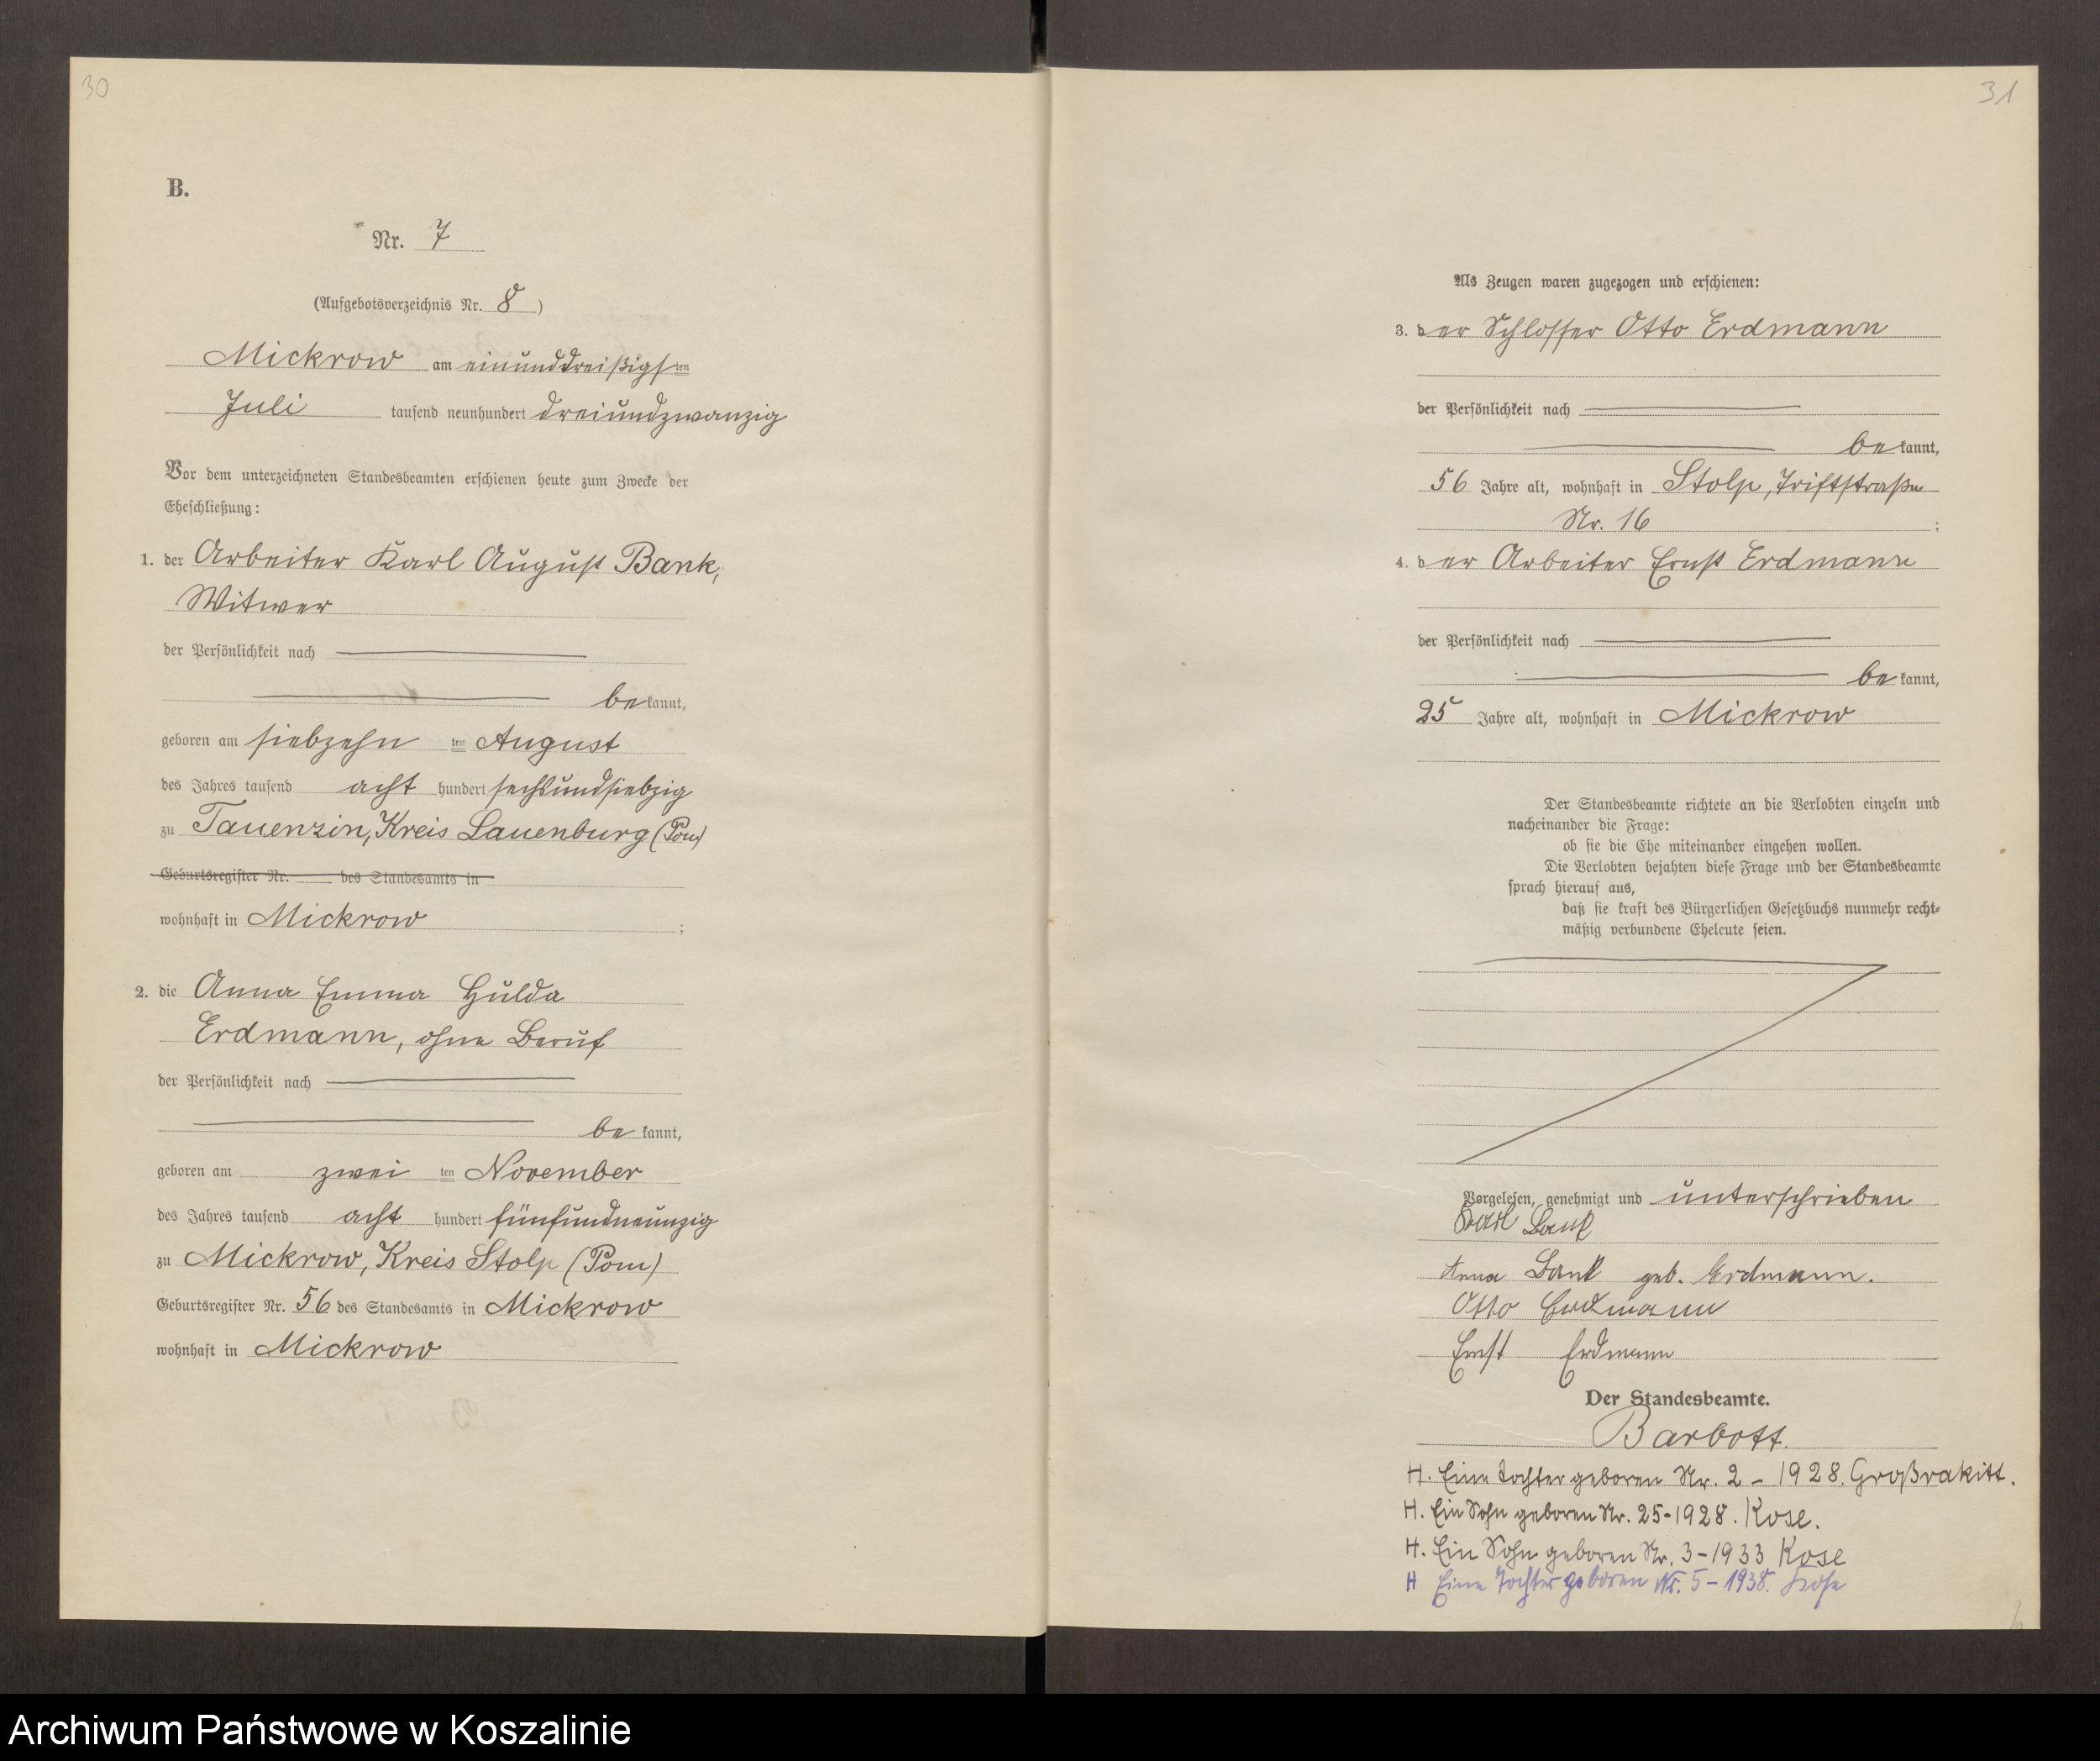 30
B.
Nr. 7
(Aufgebotsverzeichnis Nr. 8)
Mickrow am einunddreißigsten
Juli tausend neunhundert dreiundzwanzig
Vor dem unterzeichneten Standesbeamten erschienen heute zum Zwecke der
Eheschließung:
1. der Arbeiter Karl August Bank,
Witwer
der Persönlichkeit nach
be kannt,
geboren am siebzehn ten August
des Jahres tausend acht hundert sechsundsiebzig
zu Tauenzin, Kreis Lauenburg (Pom)
Geburtsregister Nr. des Standesamts in
wohnhaft in Mickrow ;
2. die Anna Emma Hulda
Erdmann, ohne Beruf
der Persönlichkeit nach
be kannt,
geboren am zwei ten November
des Jahres tausend acht hundert fünfundneunzig
zu Mickrow, Kreis Stolp (Pom)
Geburtsregister Nr. 56 des Standesamts in Mickrow
wohnhaft in Mickrow
31
Als Zeugen waren zugezogen und erschienen:
3. der Schlosser Otto Erdmann
der Persönlichkeit nach
be kannt,
56 Jahre alt, wohnhaft in Stolp, Triftstraße
Nr. 16 ;
4. der Arbeiter Ernst Erdmann
der Persönlichkeit nach
be kannt,
25 Jahre alt, wohnhaft in Mickrow
Der Standesbeamte richtete an die Verlobten einzeln und
nacheinander die Frage:
ob sie die Ehe miteinander eingehen wollen.
Die Verlobten bejahten diese Frage und der Standesbeamte
sprach hierauf aus,
daß sie kraft des Bürgerlichen Gesetzbuchs nunmehr recht-
mäßig verbundene Eheleute seien.
Vorgelesen, genehmigt und unterschrieben
Karl Bank
Anna Bank geb. Erdmann.
Otto Erdmann
Ernst Erdmann
Der Standesbeamte.
Barbott.
H. Eine Tochter geboren Nr. 2 - 1928. Großrakitt.
H. Ein Sohn geboren Nr. 25-1928. Kose.
H. Ein Sohn geboren Nr. 3-1933 Kose
H Eine Tochter geboren Nr. 5-1938. Kose
Archiwum Państwowe w Koszalinie